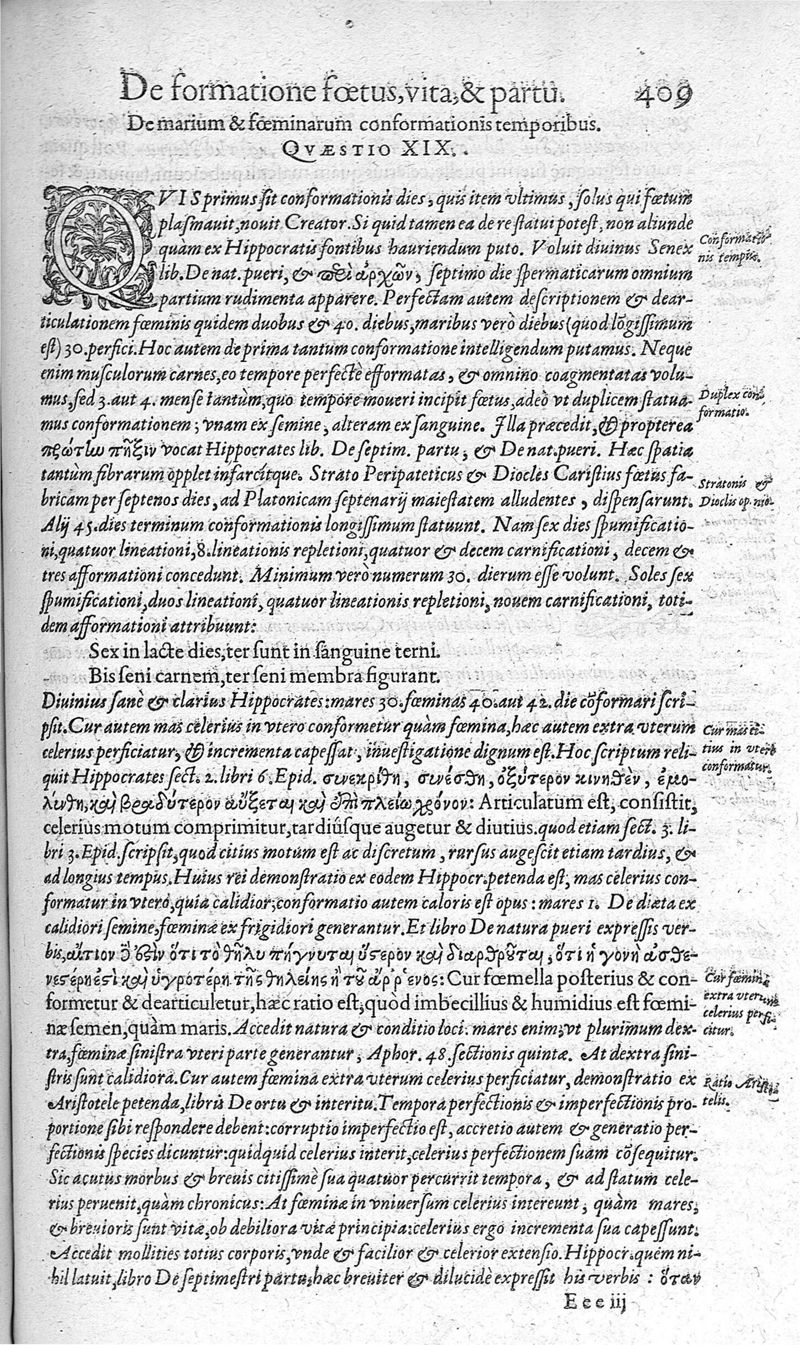 De formatione fœtus, vita, & partu. 409
De marium & fœminarum conformationis temporibus.
QVÆSTIO XIX.
QVIS primus sit conformationis dies, quis item vltimus, solus qui fœtum
plasmauit, nouit Creator. Si quid tamen ea de re statui potest, non aliunde
quàm ex Hippocratis fontibus hauriendum puto. Voluit diuinus Senex
Conformatio-
nis tempus.
lib. De nat. pueri, & περὶ ἀρχῶν, septimo die spermaticarum omnium
partium rudimenta apparere. Perfectam autem descriptionem & dear-
ticulationem fœminis quidem duobus & 40. diebus, maribus verò diebus (quod lōgissimum
est) 30. perfici. Hoc autem de prima tantum conformatione intelligendum putamus. Neque
enim musculorum carnes, eo tempore perfectè efformatas, & omnino coagmentatas volu-
mus, sed 3. aut 4. mense tantùm, quo tempore moueri incipit fœtus, adeò vt duplicem statua-
Duplex con-
formatio.
mus conformationem; vnam ex semine, alteram ex sanguine. Illa præcedit, & propterea
πρώτην πῆξιν vocat Hippocrates lib. De septim. partu, & De nat. pueri. Hæc spatia
tantùm fibrarum opplet infarcítque. Strato Peripateticus & Diocles Caristius fœtus fa-
Stratonis &
Dioclis opinio.
bricam per septenos dies, ad Platonicam septenarij maiestatem alludentes, dispensarunt.
Alij 45. dies terminum conformationis longissimum statuunt. Nam sex dies spumificatio-
ni, quatuor lineationi, 8. lineationis repletioni, quatuor & decem carnificationi, decem &
tres afformationi concedunt. Minimum verò numerum 30. dierum esse volunt. Soles sex
spumificationi, duos lineationi, quatuor lineationis repletioni, nouem carnificationi, toti-
dem afformationi attribuunt:
Sex in lacte dies, ter sunt in sanguine terni.
Bis seni carnem, ter seni membra figurant.
Diuinius sanè & clarius Hippocrates: mares 30. fœminas 40. aut 42. die cōformari scri-
psit. Cur autem mas celerius in vtero conformetur quàm fœmina, hæc autem extra vterum
Cur mas ci-
tius in vtero
conformatur.
celerius perficiatur, & incrementa capessat, inuestigatione dignum est. Hoc scriptum reli-
quit Hippocrates sect. 2. libri 6. Epid. σινεκρίθη, σινέστη, ὀξύτερον κινηθὲν, ἐμο-
λύνθη, καὶ βραδύτερον αὔξεται καὶ ἐπὶ πλείω χρόνον: Articulatum est, consistit,
celerius motum comprimitur, tardiúsque augetur & diutius. quod etiam sect. 3. li-
bri 3. Epid. scripsit, quod citius motum est ac discretum, rursus augescit etiam tardius, &
ad longius tempus. Huius rei demonstratio ex eodem Hippocr. petenda est; mas celerius con-
formatur in vtero, quia calidior; conformatio autem caloris est opus: mares 1. De diæta ex
calidiori semine, fœminæ ex frigidiori generantur. Et libro De natura pueri expressis ver-
bis, αἴτιον δ' ἐστὶν ὅτι τὸ θῆλυ πήγνυται ὕστερον καὶ διαρθροῦται, ὅτι ἡ γονὴ ἀσθε-
νεστέρη ἐστὶ καὶ ὑγροτέρη τῆς θηλείης ἢ τοῦ ἄρρενος: Cur fœmella posterius & con-
Cur fœmina
extra vterum
celerius perfi-
citur.
formetur & dearticuletur, hæc ratio est, quòd imbecillius & humidius est fœmi-
næ semen, quàm maris. Accedit natura & conditio loci. mares enim, vt plurimum dex-
tra, fœminæ sinistra vteri parte generantur, Aphor. 48. sectionis quintæ. At dextra sini-
stris sunt calidiora. Cur autem fœmina extra vterum celerius perficiatur, demonstratio ex
Ratio Aristo-
telis.
Aristotele petenda, libris De ortu & interitu. Tempora perfectionis & imperfectionis pro-
portione sibi respondere debent: corruptio imperfectio est, accretio autem & generatio per-
fectionis species dicuntur: quidquid celerius interit, celerius perfectionem suam cōsequitur.
Sic acutus morbus & breuis citissimè sua quatuor percurrit tempora, & ad statum cele-
rius peruenit, quàm chronicus: At fœminæ in vniuersum celerius intereunt, quàm mares,
& breuioris sunt vitæ, ob debiliora vitæ principia: celerius ergo incrementa sua capessunt.
Accedit mollities totius corporis, vnde & facilior & celerior extensio. Hippocr. quem ni-
hil latuit, libro De septimestri partu, hæc breuiter & dilucidè expressit his verbis: ὅταν
Eee iij